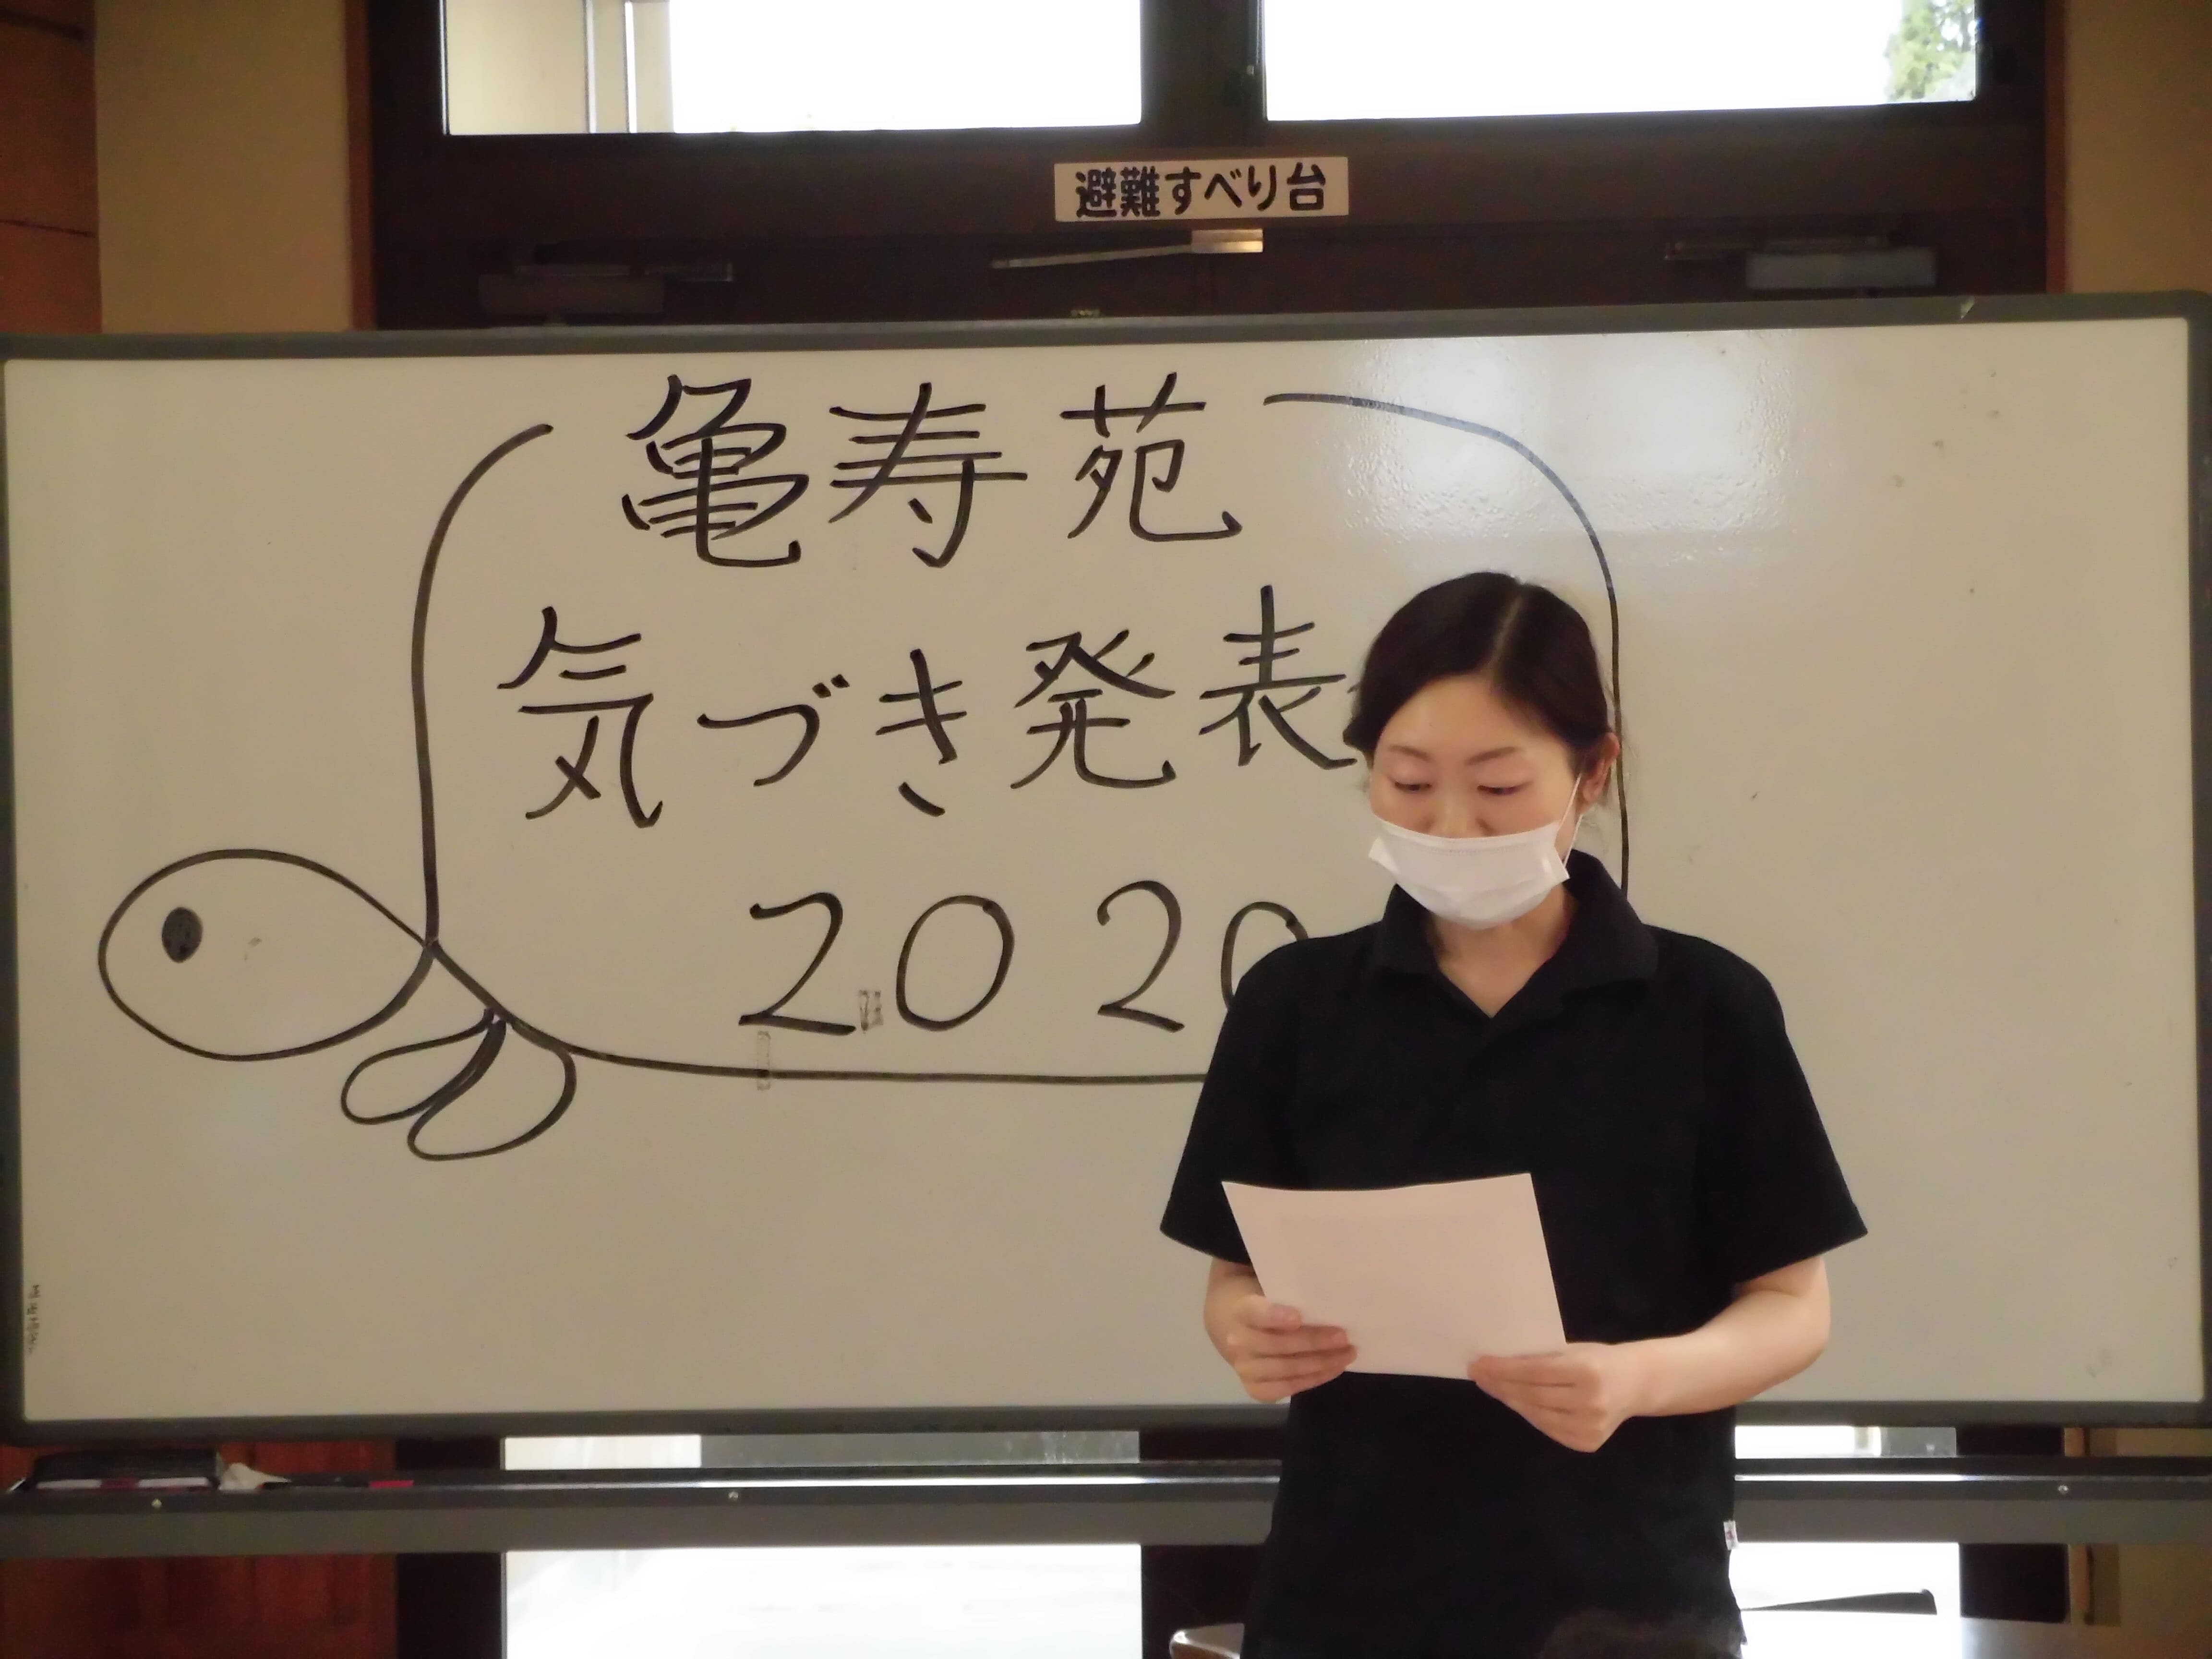 避難すべり台
亀寿苑
気づき発表
2020